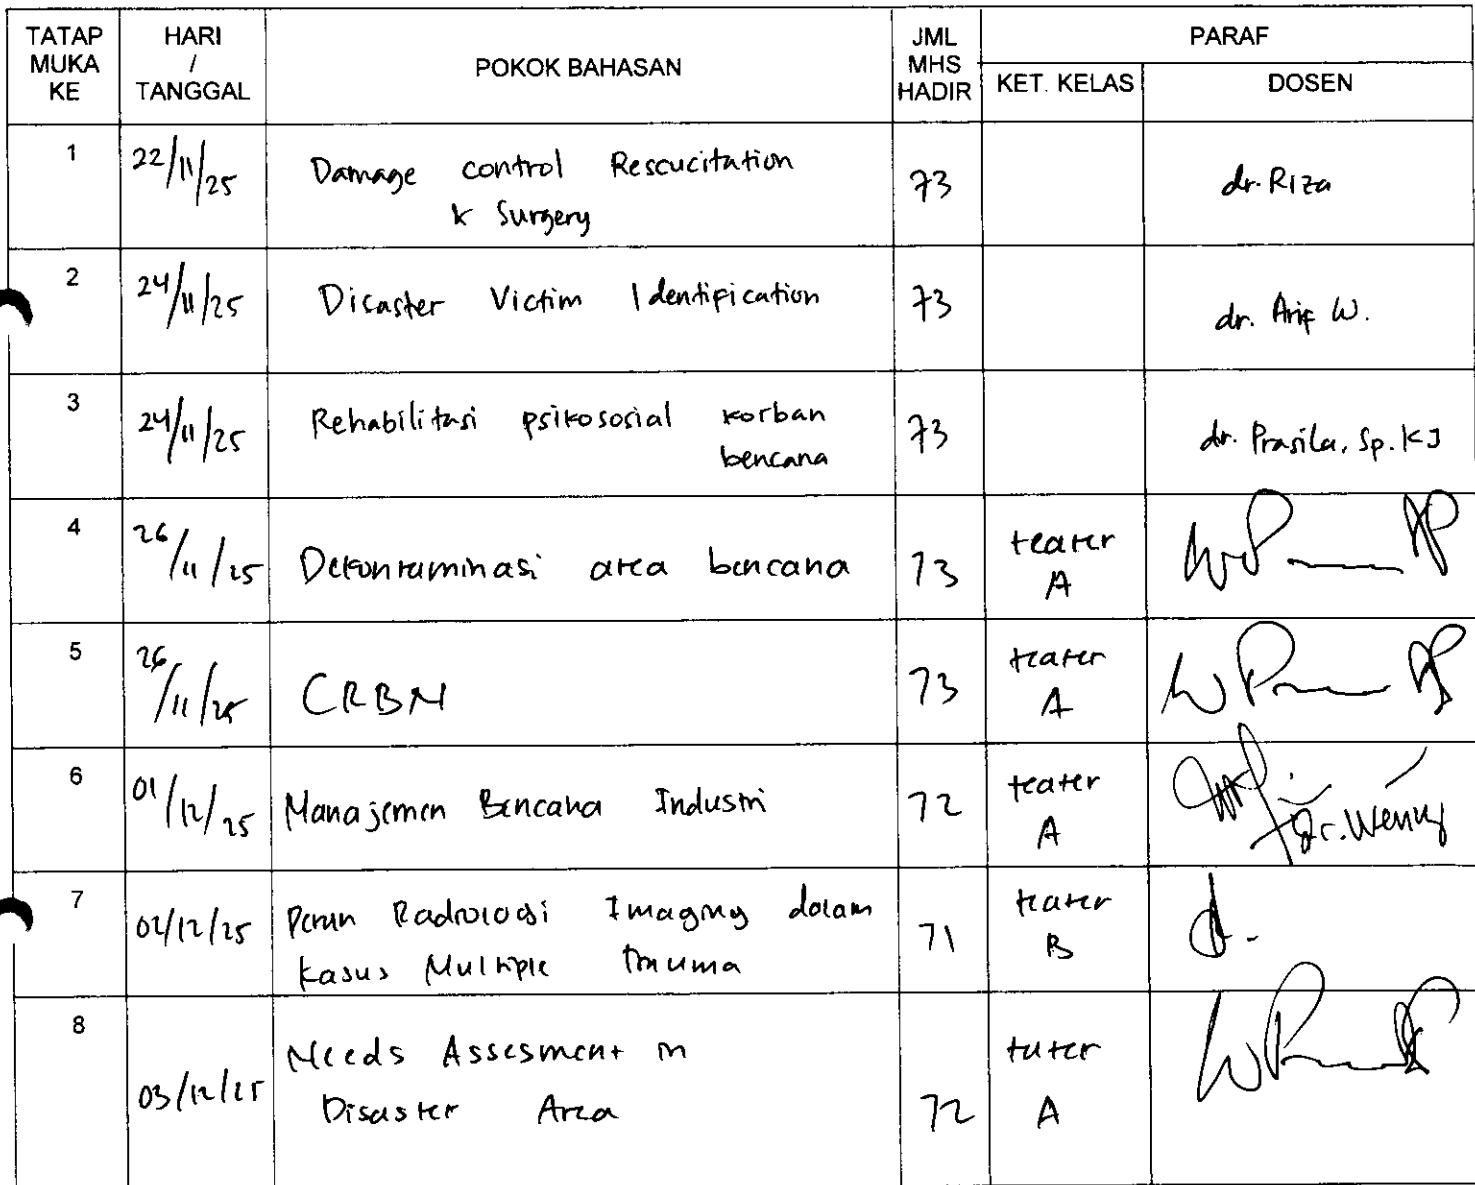 TATAP MUKA KE
HARI / TANGGAL
POKOK BAHASAN
JML MHS HADIR
PARAF
KET. KELAS
DOSEN
1
22/11/25
Damage control Rescucitation
& Surgery
73
dr. Riza
2
24/11/25
Disaster Victim Identification
73
dr. Arif W.
3
24/11/25
Rehabilitasi psikososial korban
bencana
73
dr. Prasila, Sp. KJ
4
26/11/25
Dekontaminasi area bencana
73
teater
A
5
26/11/25
CRBN
73
teater
A
6
01/12/25
Manajemen Bencana Industri
72
teater
A
dr. Wenny
7
02/12/25
Peran Radiologi Imaging dalam
kasus Multiple trauma
71
teater
B
8
03/12/25
Needs Assesment in
Disaster Area
72
teater
A